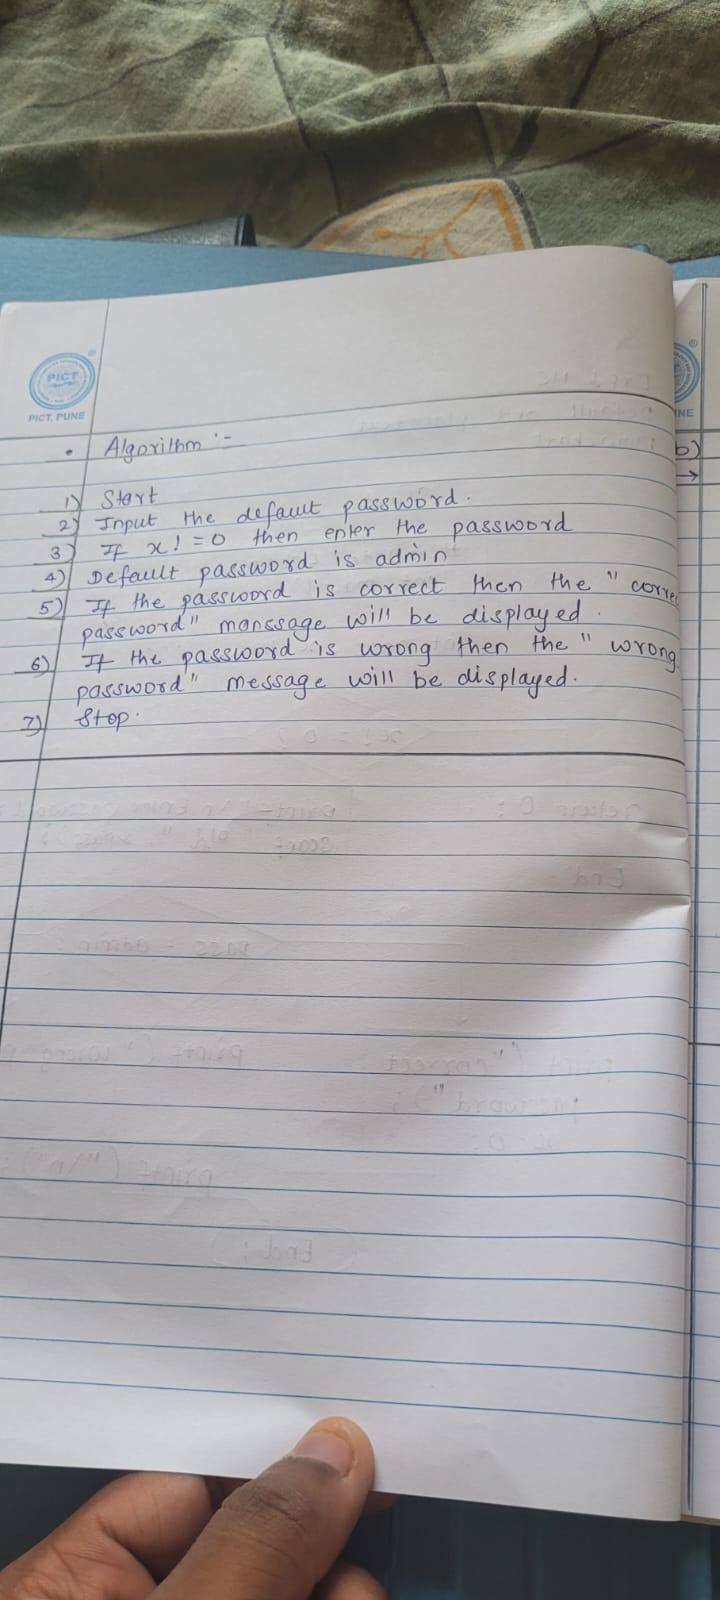 PICT
PICT, PUNE
NE
• Algorithm :-
b)
→
1) Start
2) Input the default password.
3) If x! = 0 then enter the password
4) Default password is admin
5) If the password is correct then the "correc
password" manssage will be displayed.
6) If the password is wrong then the "wrong
password" message will be displayed.
7) Stop.